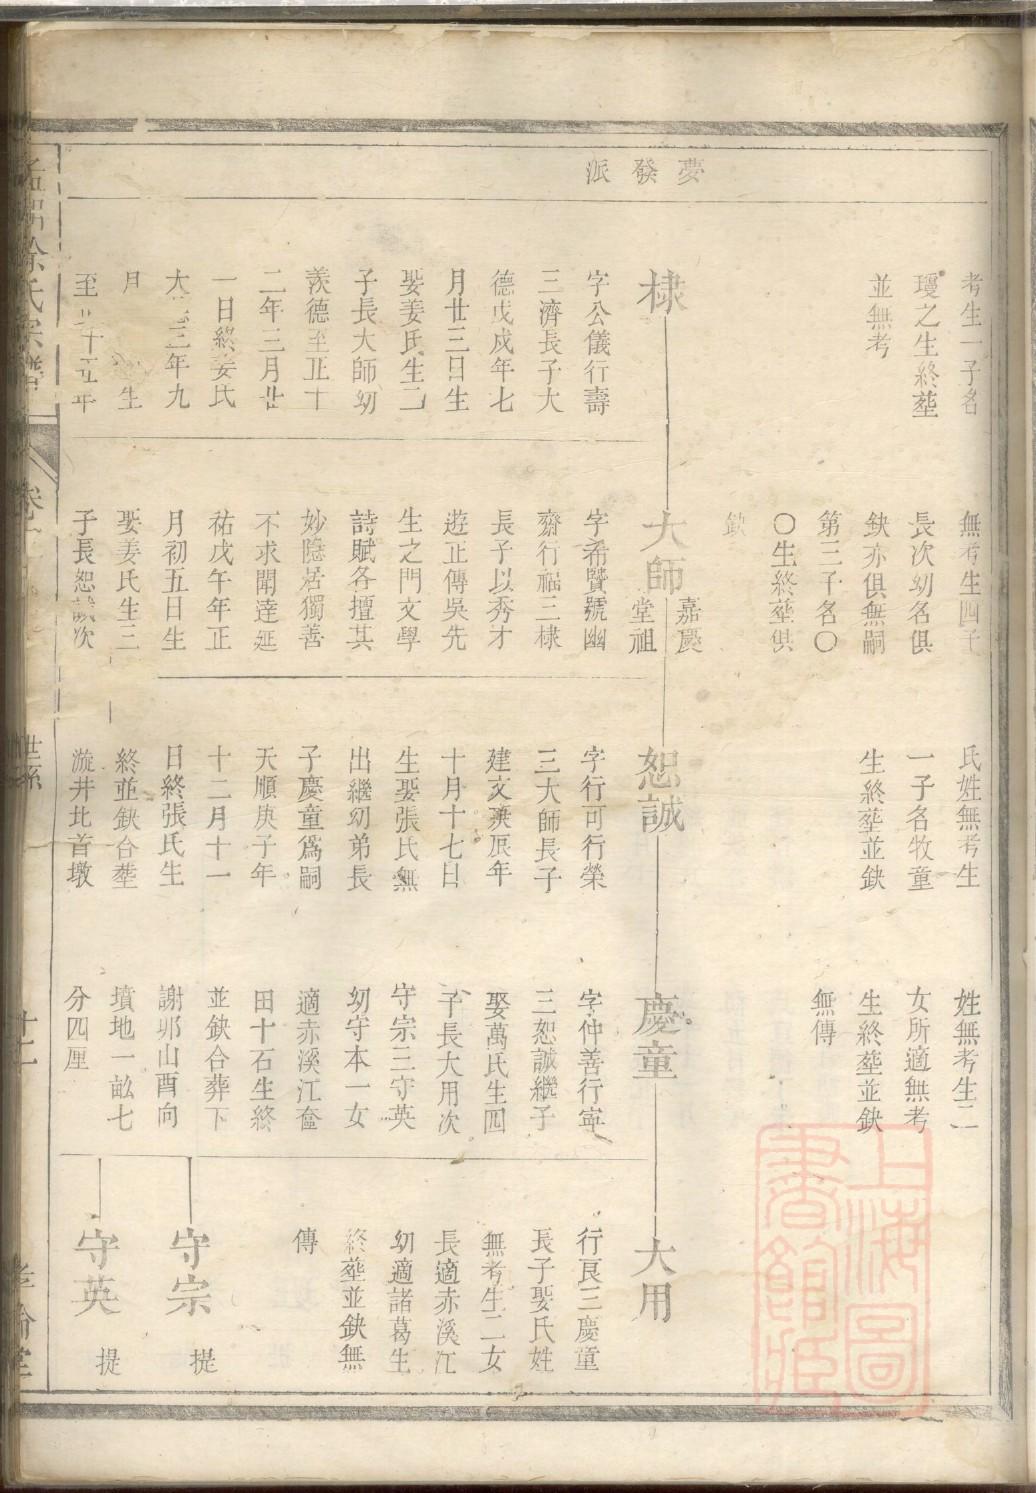 夢發派
考生一子名
瓊之生終塟
並無考
棣
字公儀行壽
三濟長子大
德戊戌年七
月廿三日生
娶姜氏生二
子長大師幼
羨德至正十
二年三月廿
一日終姜氏
大三年九
月生
至正十五年
無考生四子
長次幼名俱
鈌亦俱無嗣
第三子名〇
〇生終塟俱
鈌
大師
嘉慶
堂祖
字希賢號幽
齋行福三棣
長子以秀才
遊正傳吳先
生之門文學
詩賦各擅其
妙隐居獨善
不求聞達延
祐戊午年正
月初五日生
娶姜氏生二
子長恕誠次
氏姓無考生
一子名牧童
生終塟並鈌
恕誠
字行可行榮
三大師長子
建文庚辰年
十月十七日
生娶張氏無
出繼幼弟長
子慶童爲嗣
天順庚子年
十二月十一
日終張氏生
終並鈌合塟
漩井北首墩
姓無考生二
女所適無考
生終塟並鈌
無傳
慶童
字仲善行寜
三恕誠繼子
娶萬氏生四
子長大用次
守宗三守英
幼守本一女
適赤溪江奩
田十石生終
並鈌合葬下
謝郍山酉向
墳地一畝七
分四厘
大用
行良三慶童
長子娶氏姓
無考生二女
長適赤溪江
幼適諸葛生
終塟並鈌無
傳
守宗
提
守英
提
徐氏宗譜
卷
世系
十二
上海圖書館藏